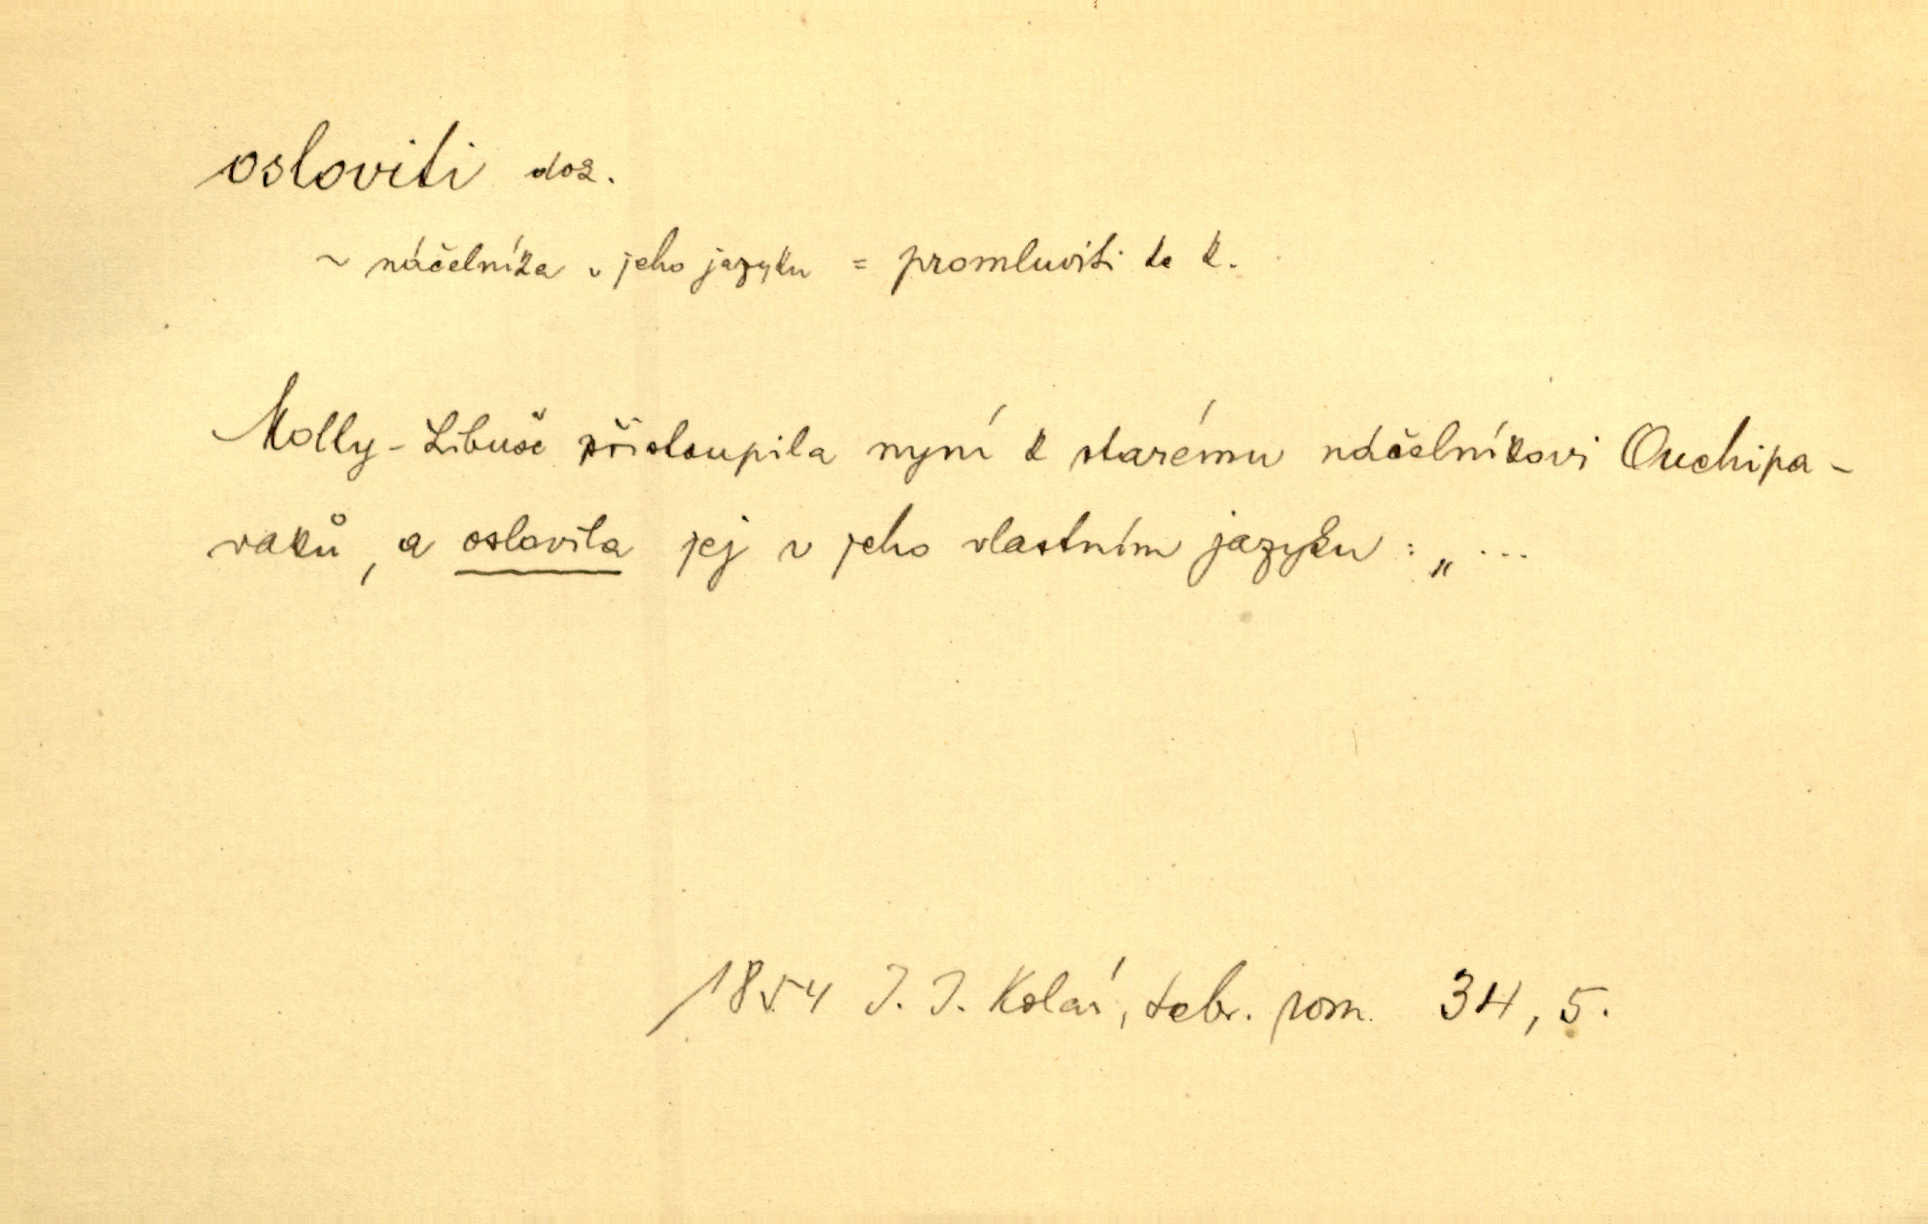 osloviti dok.
~ náčelníka v jeho jazyku = promluviti k k.
Molly-Libuše přistoupila nyní k starému náčelníkovi Ouchipa-
vaků, a oslovila jej v jeho vlastním jazyku: „ ...
1854 J. J. Kolár, sebr. rom. 34, 5.